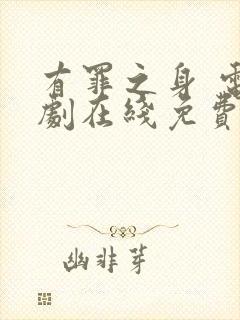 有罪之身 電
劇在綫免費
幽非芽